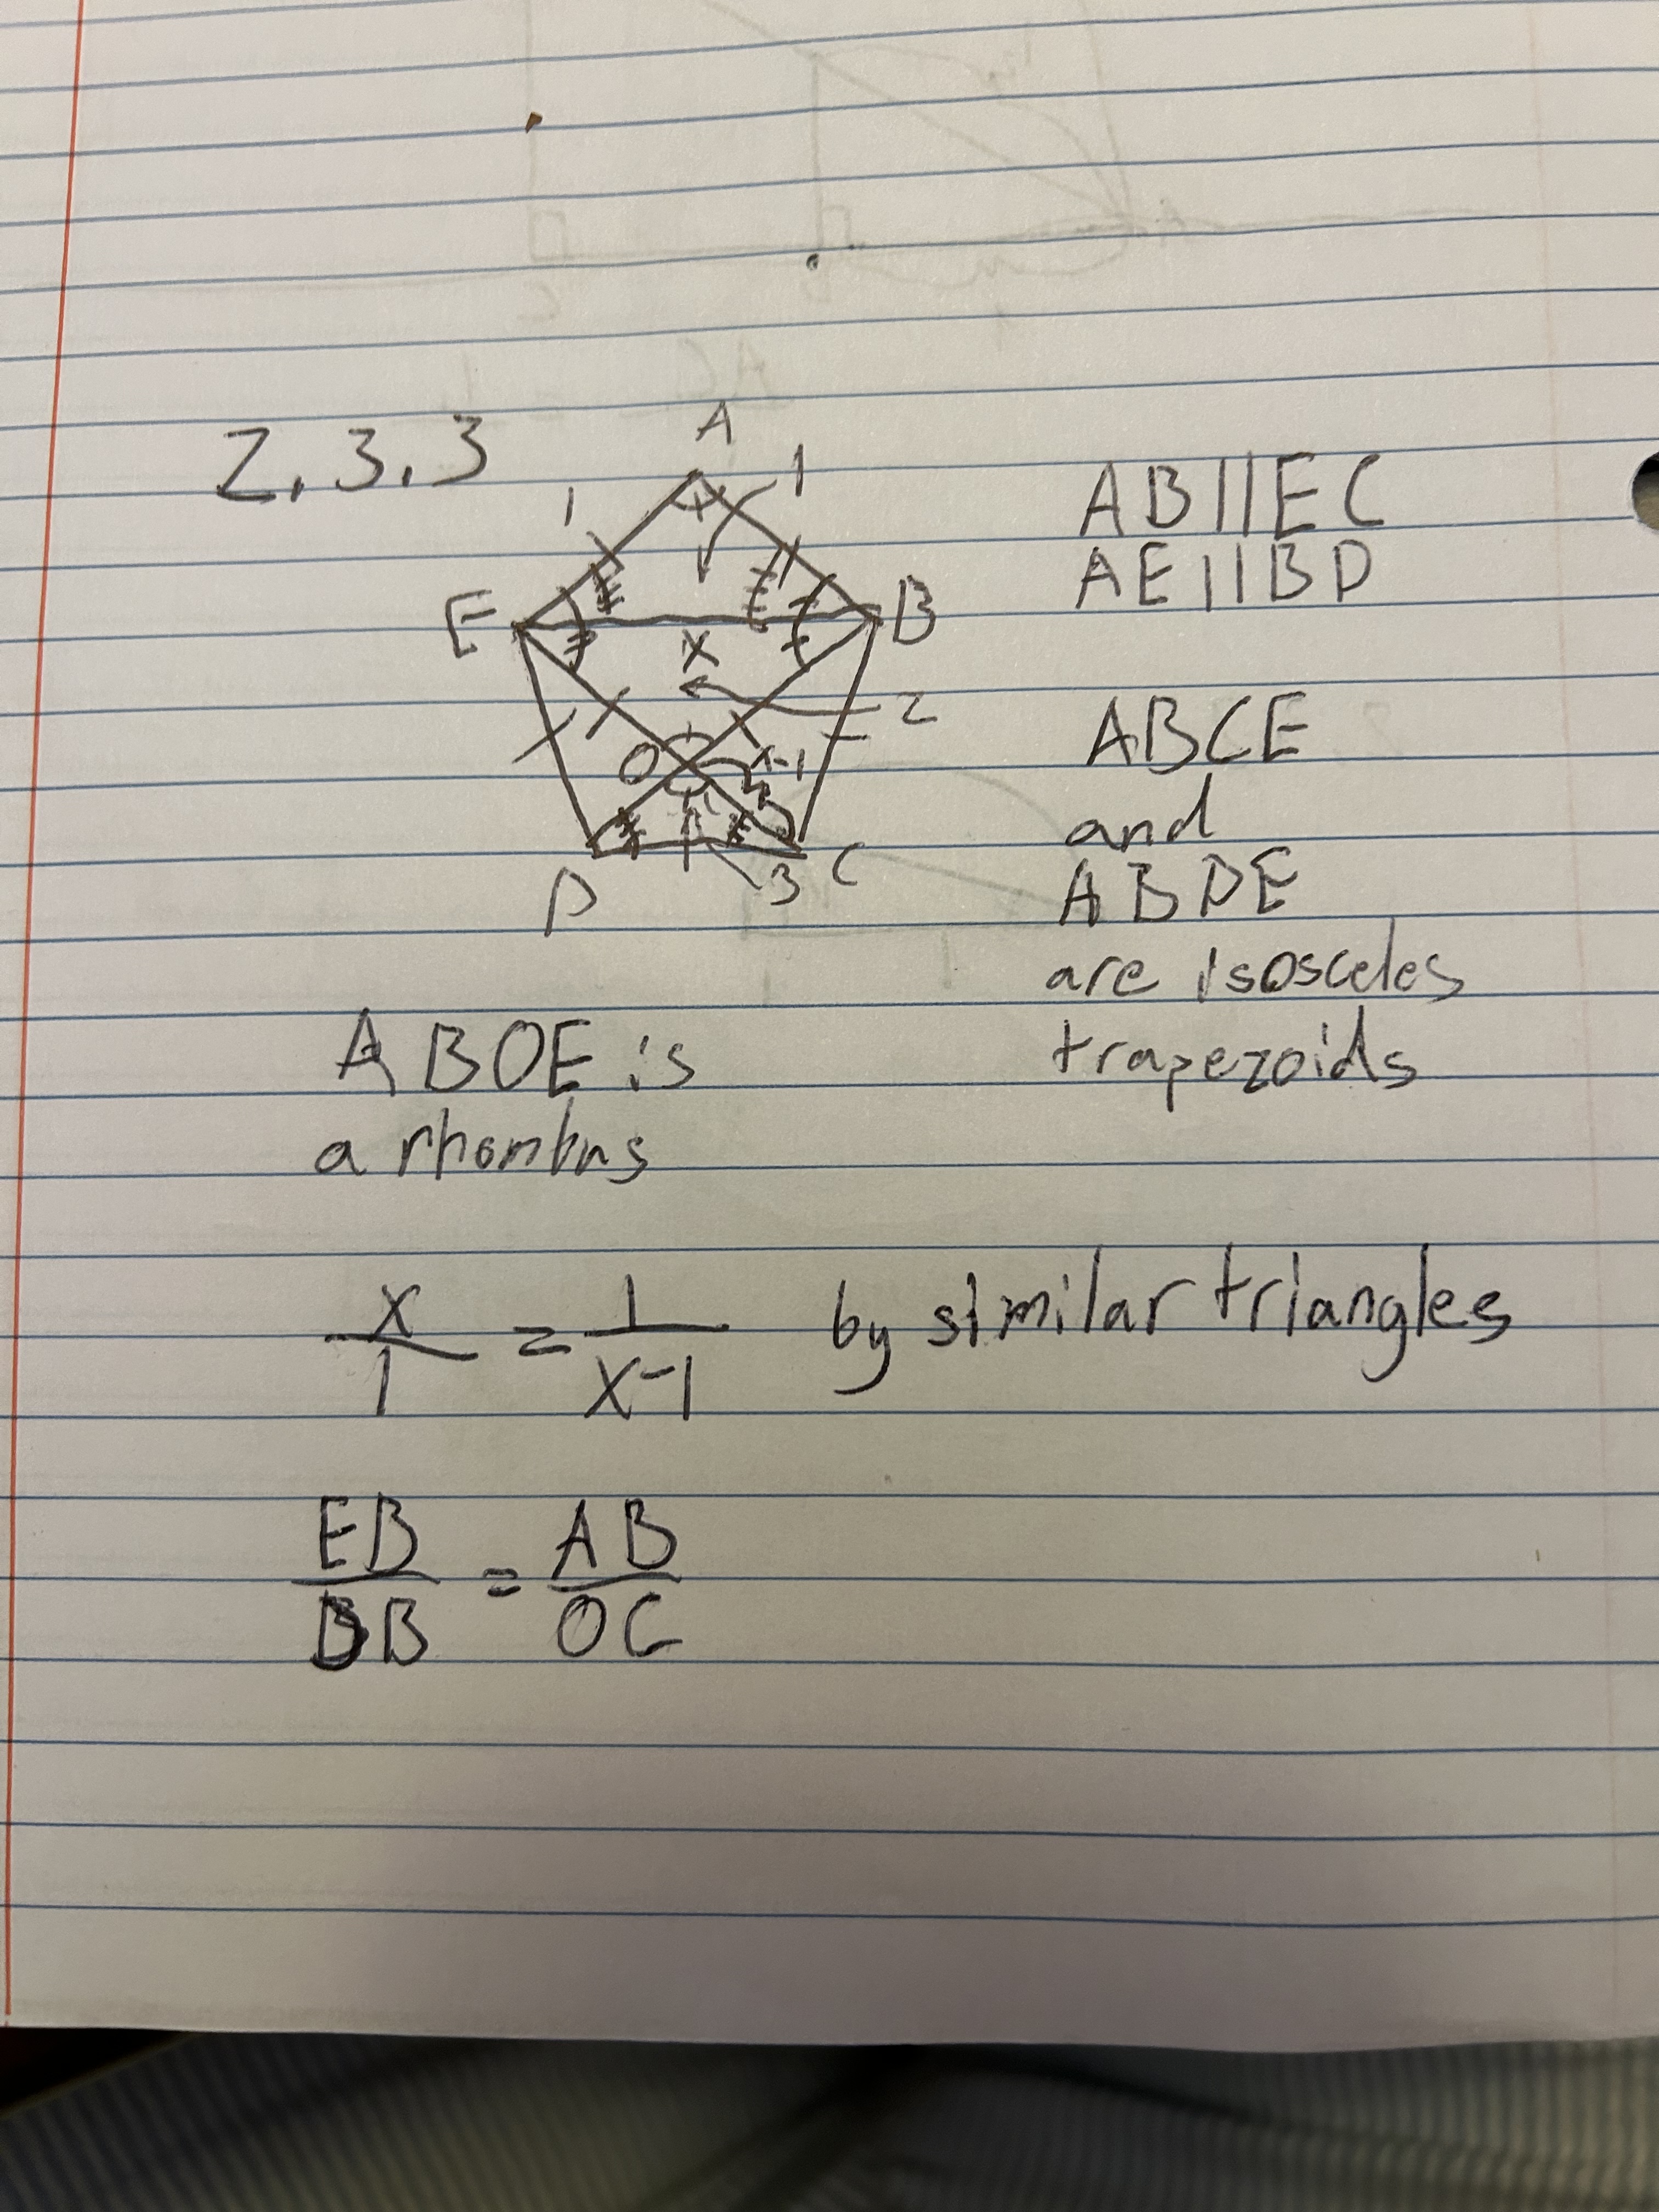 2.3.3
A
1
1
E
B
X
2
O
X-1
D
3
C
AB||EC
AE||BD
ABCE
and
ABDE
are isosceles
trapezoids
ABOE is
a rhombus
X/1 = 1/X-1 by similar triangles
EB/DB = AB/OC